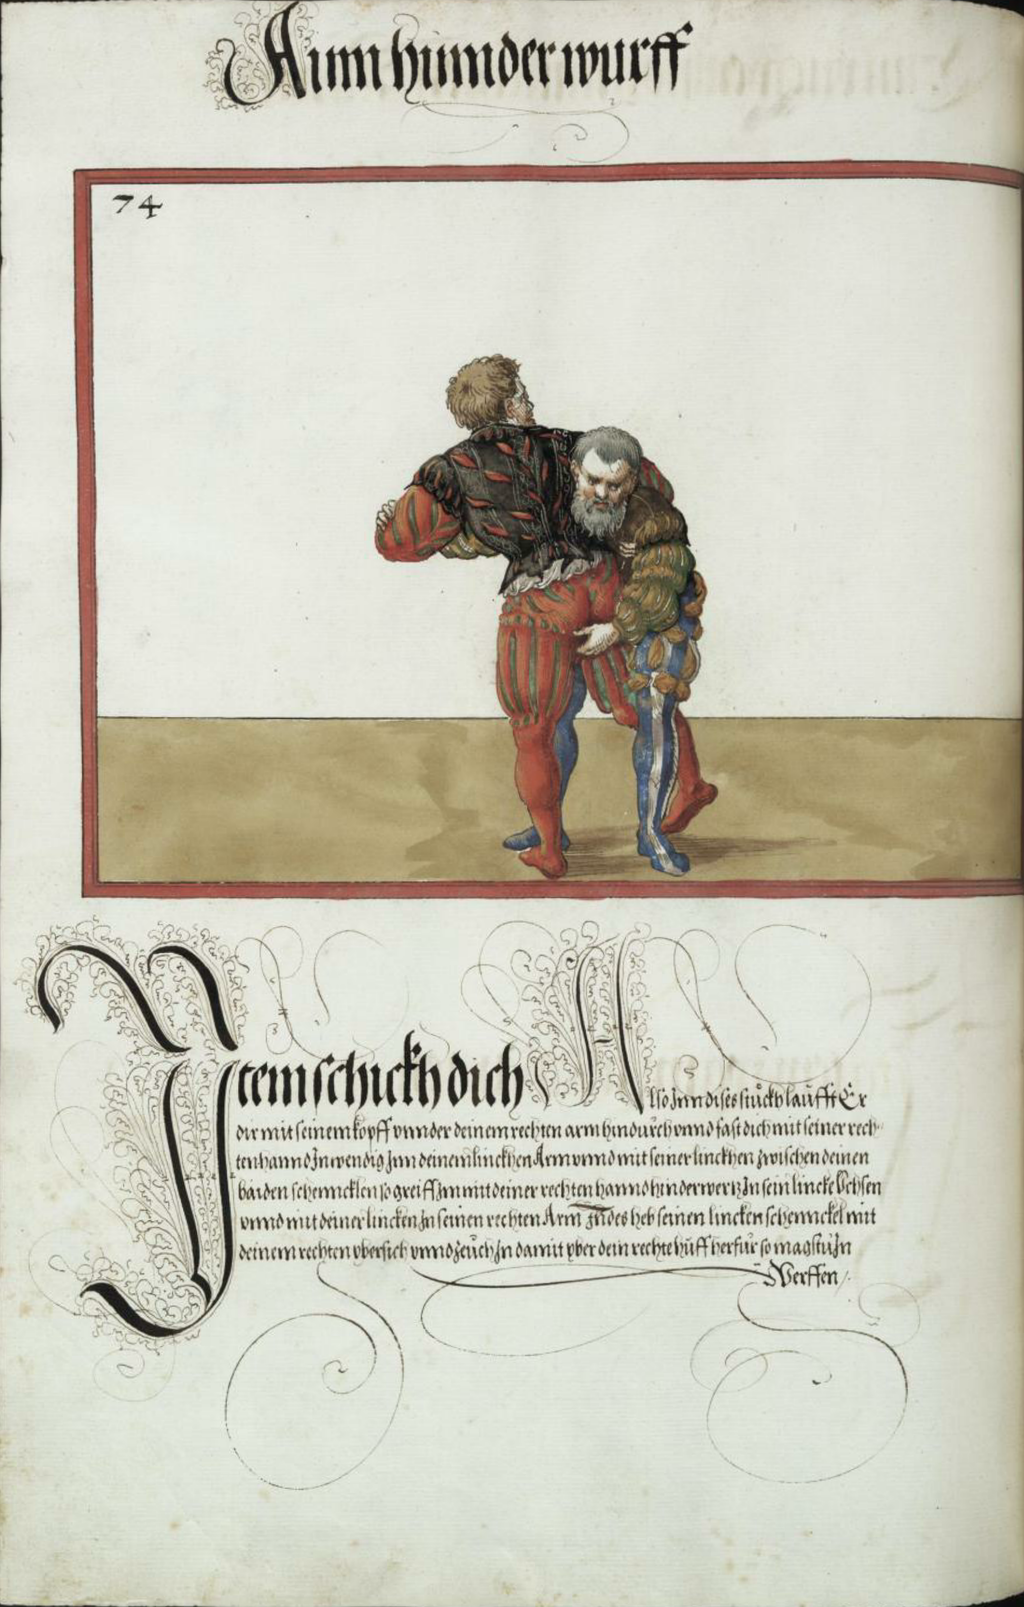 Ain hinnder wurff
74
Item schickh dich Also Jnn dises stuckh laufft Er
dir mit seinem kopff vnnder deinem rechten arm hindurch vnnd fast dich mit seiner rech-
ten hannd Jnwendig Jnn deinem linckhen Arm vnnd mit seiner linckhen zwischen deinen
baiden schennckhlen so greiff Jm mit deiner rechten hannd hinderwertz Jn sein lincke Vchsen
vnnd mit deiner lincken Jn seinen rechten Arm Jndes heb seinen lincken schennckel mit
deinem rechten vbersich vnnd zeuch Jn damit yber dein rechte huff herfur so magstu Jn
Werffen /.